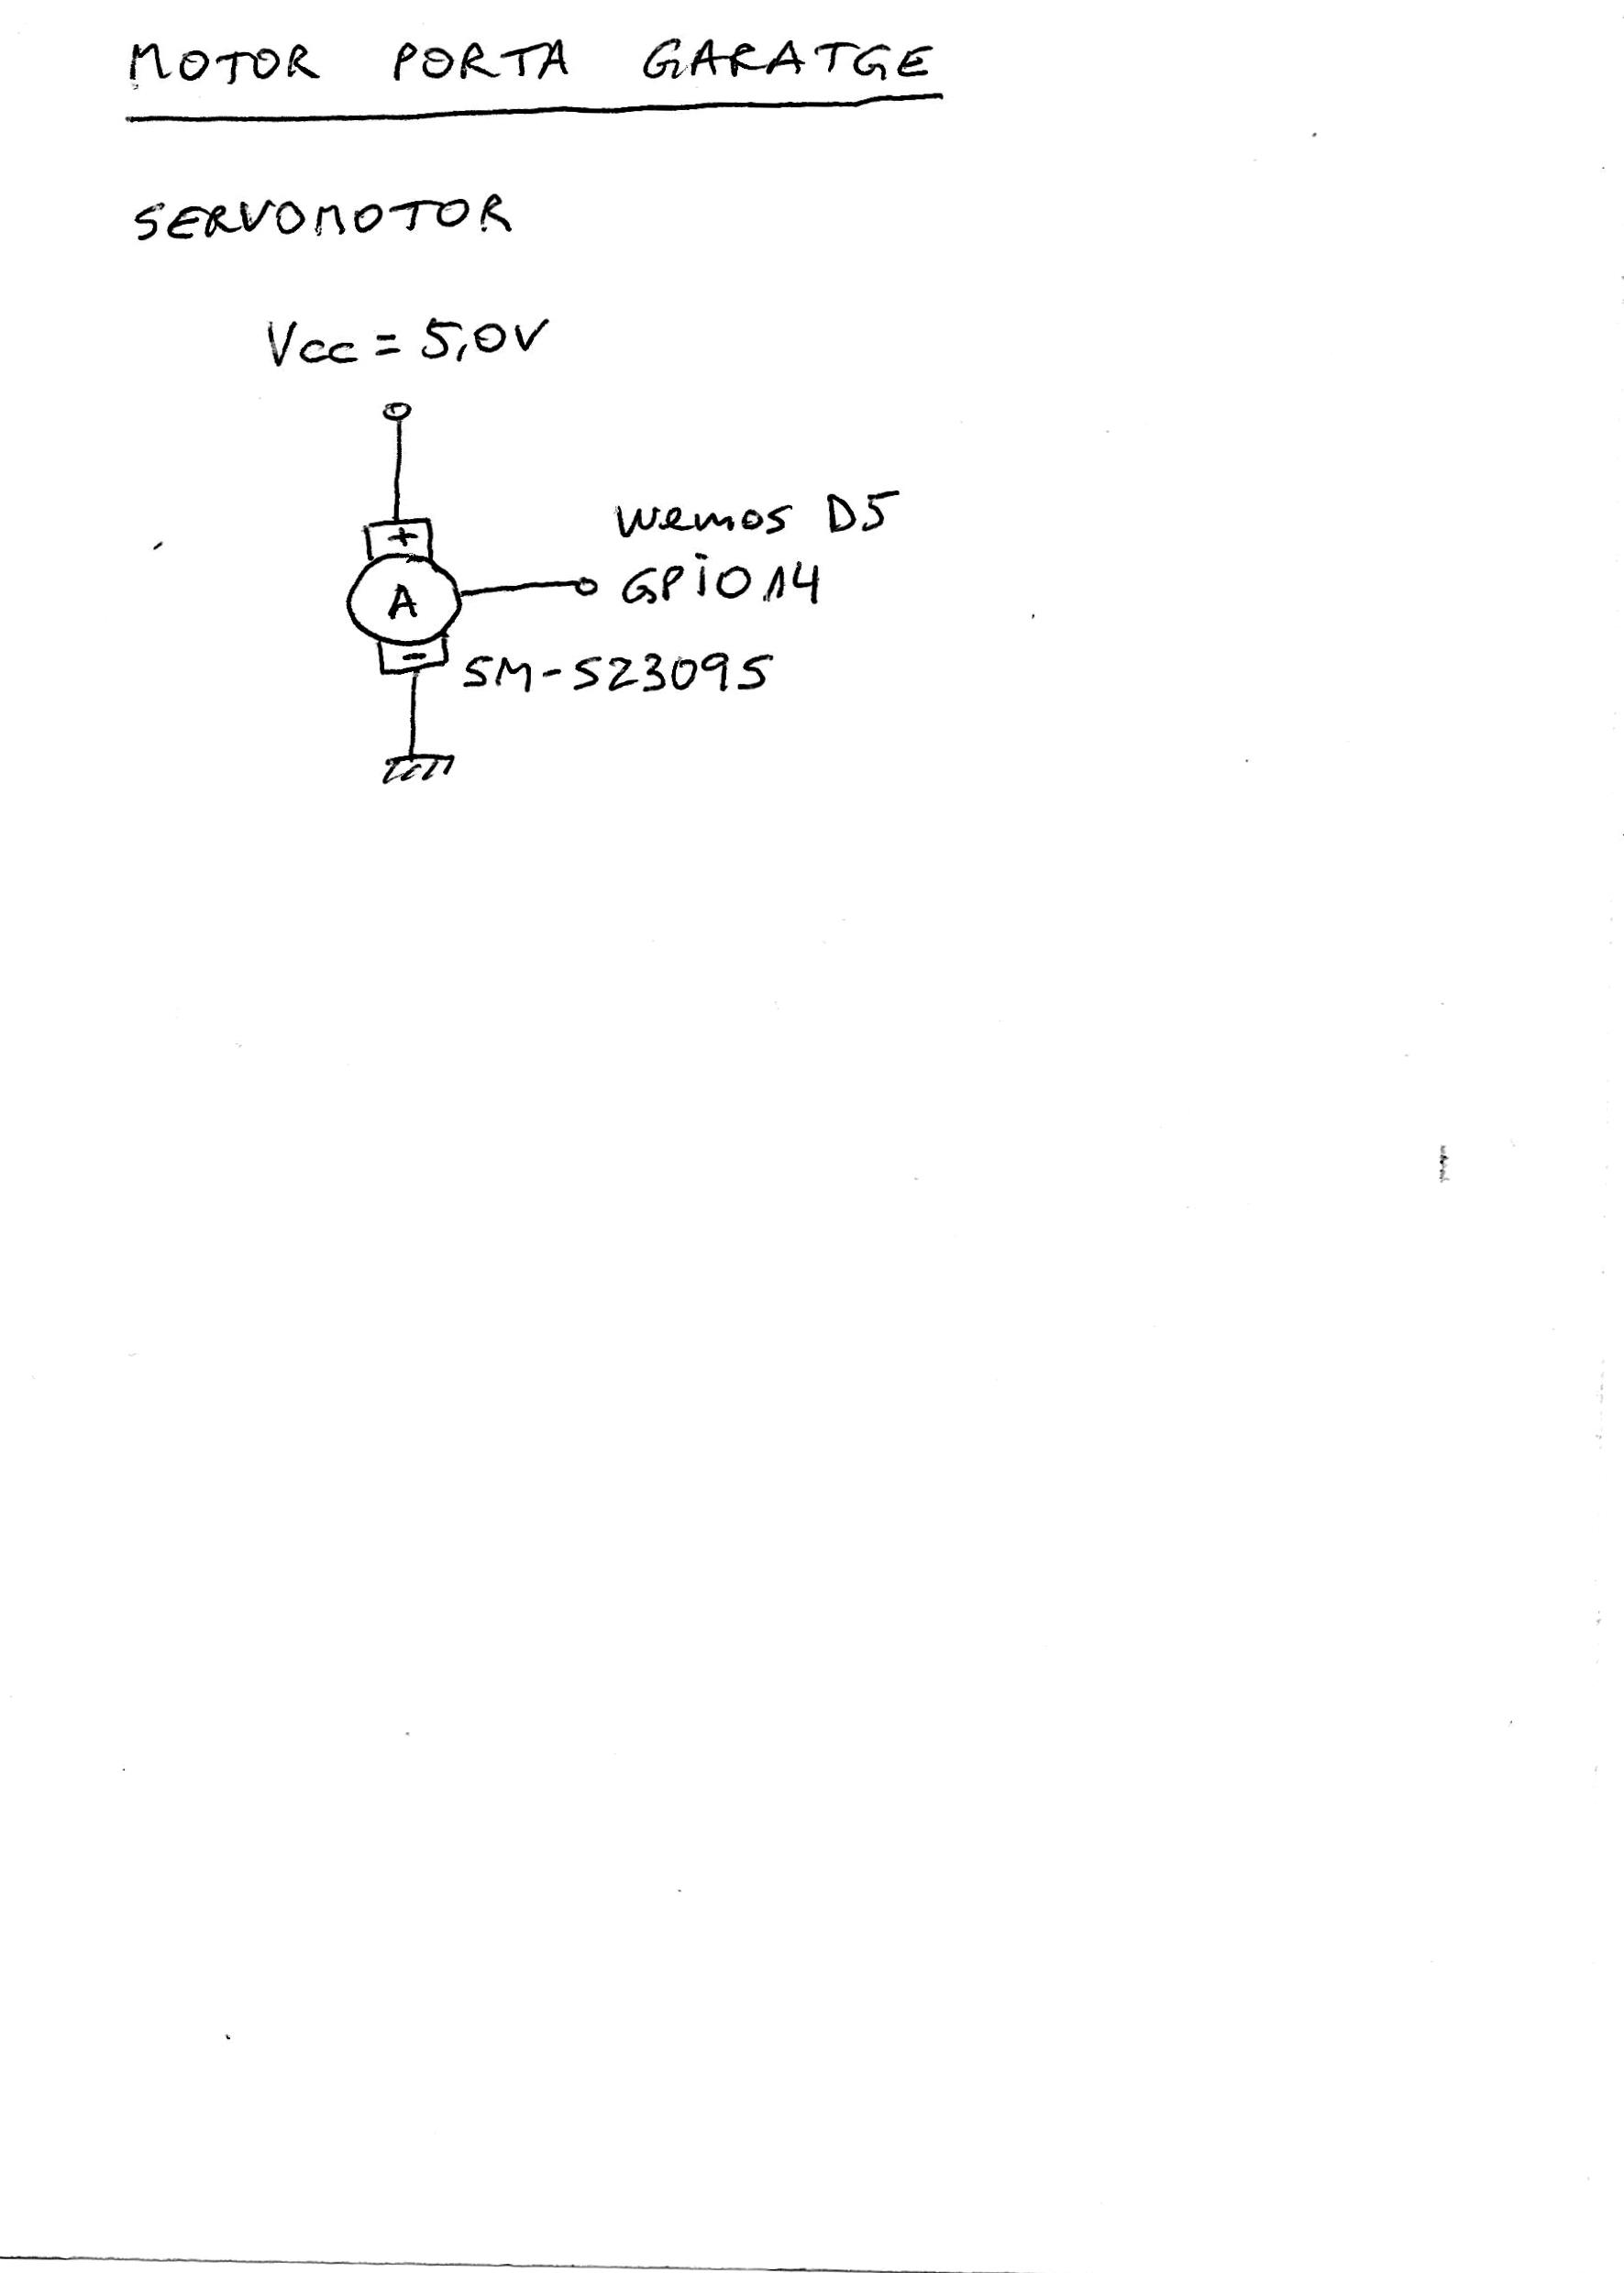 MOTOR PORTA GARATGE
SERVOMOTOR
Vcc = 5,0V
+
wemos D5
A
GPIO14
-
SM-S2309S